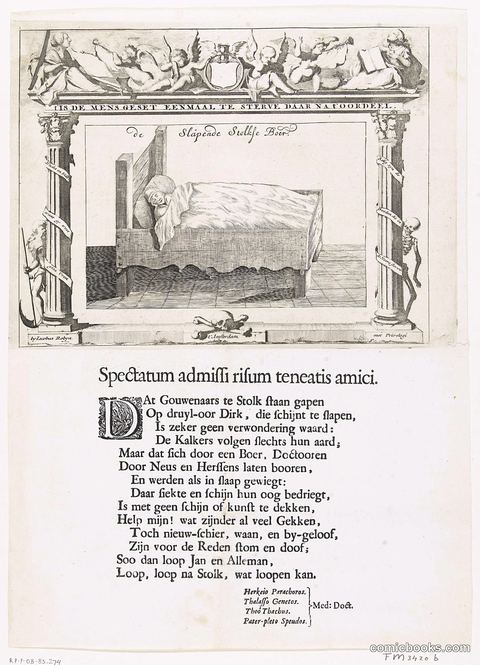 TIS DE MENS GESET EENMAAL TE STERVE DAAR NA T OORDEEL.
de Slapende Stolkse Boer.
by Iacobus Robyn
t'Amsterdam
met Privilegi
Spectatum admiſſi riſum teneatis amici.
DAt Gouwenaars te Stolk ſtaan gapen
Op druyl-oor Dirk, die ſchijnt te ſlapen,
Is zeker geen verwondering waard:
De Kalkers volgen ſlechts hun aard;
Maar dat ſich door een Boer, Doctooren
Door Neus en Herſſens laten booren,
En werden als in ſlaap gewiegt:
Daar ſiekte en ſchijn hun oog bedriegt,
Is met geen ſchijn of kunſt te dekken,
Help mijn! wat zijnder al veel Gekken,
Toch nieuw-ſchier, waan, en by-geloof,
Zijn voor de Reden ſtom en doof;
Soo dan loop Jan en Alleman,
Loop, loop na Stolk, wat loopen kan.
Herkeio Parachoros.
Thalaſſo Genetos.
Thoô Thachus.
Pater-pleto Speudos.
Med: Doct.
RP-P-OB-83.274
FM 3420 b
comicbooks.com